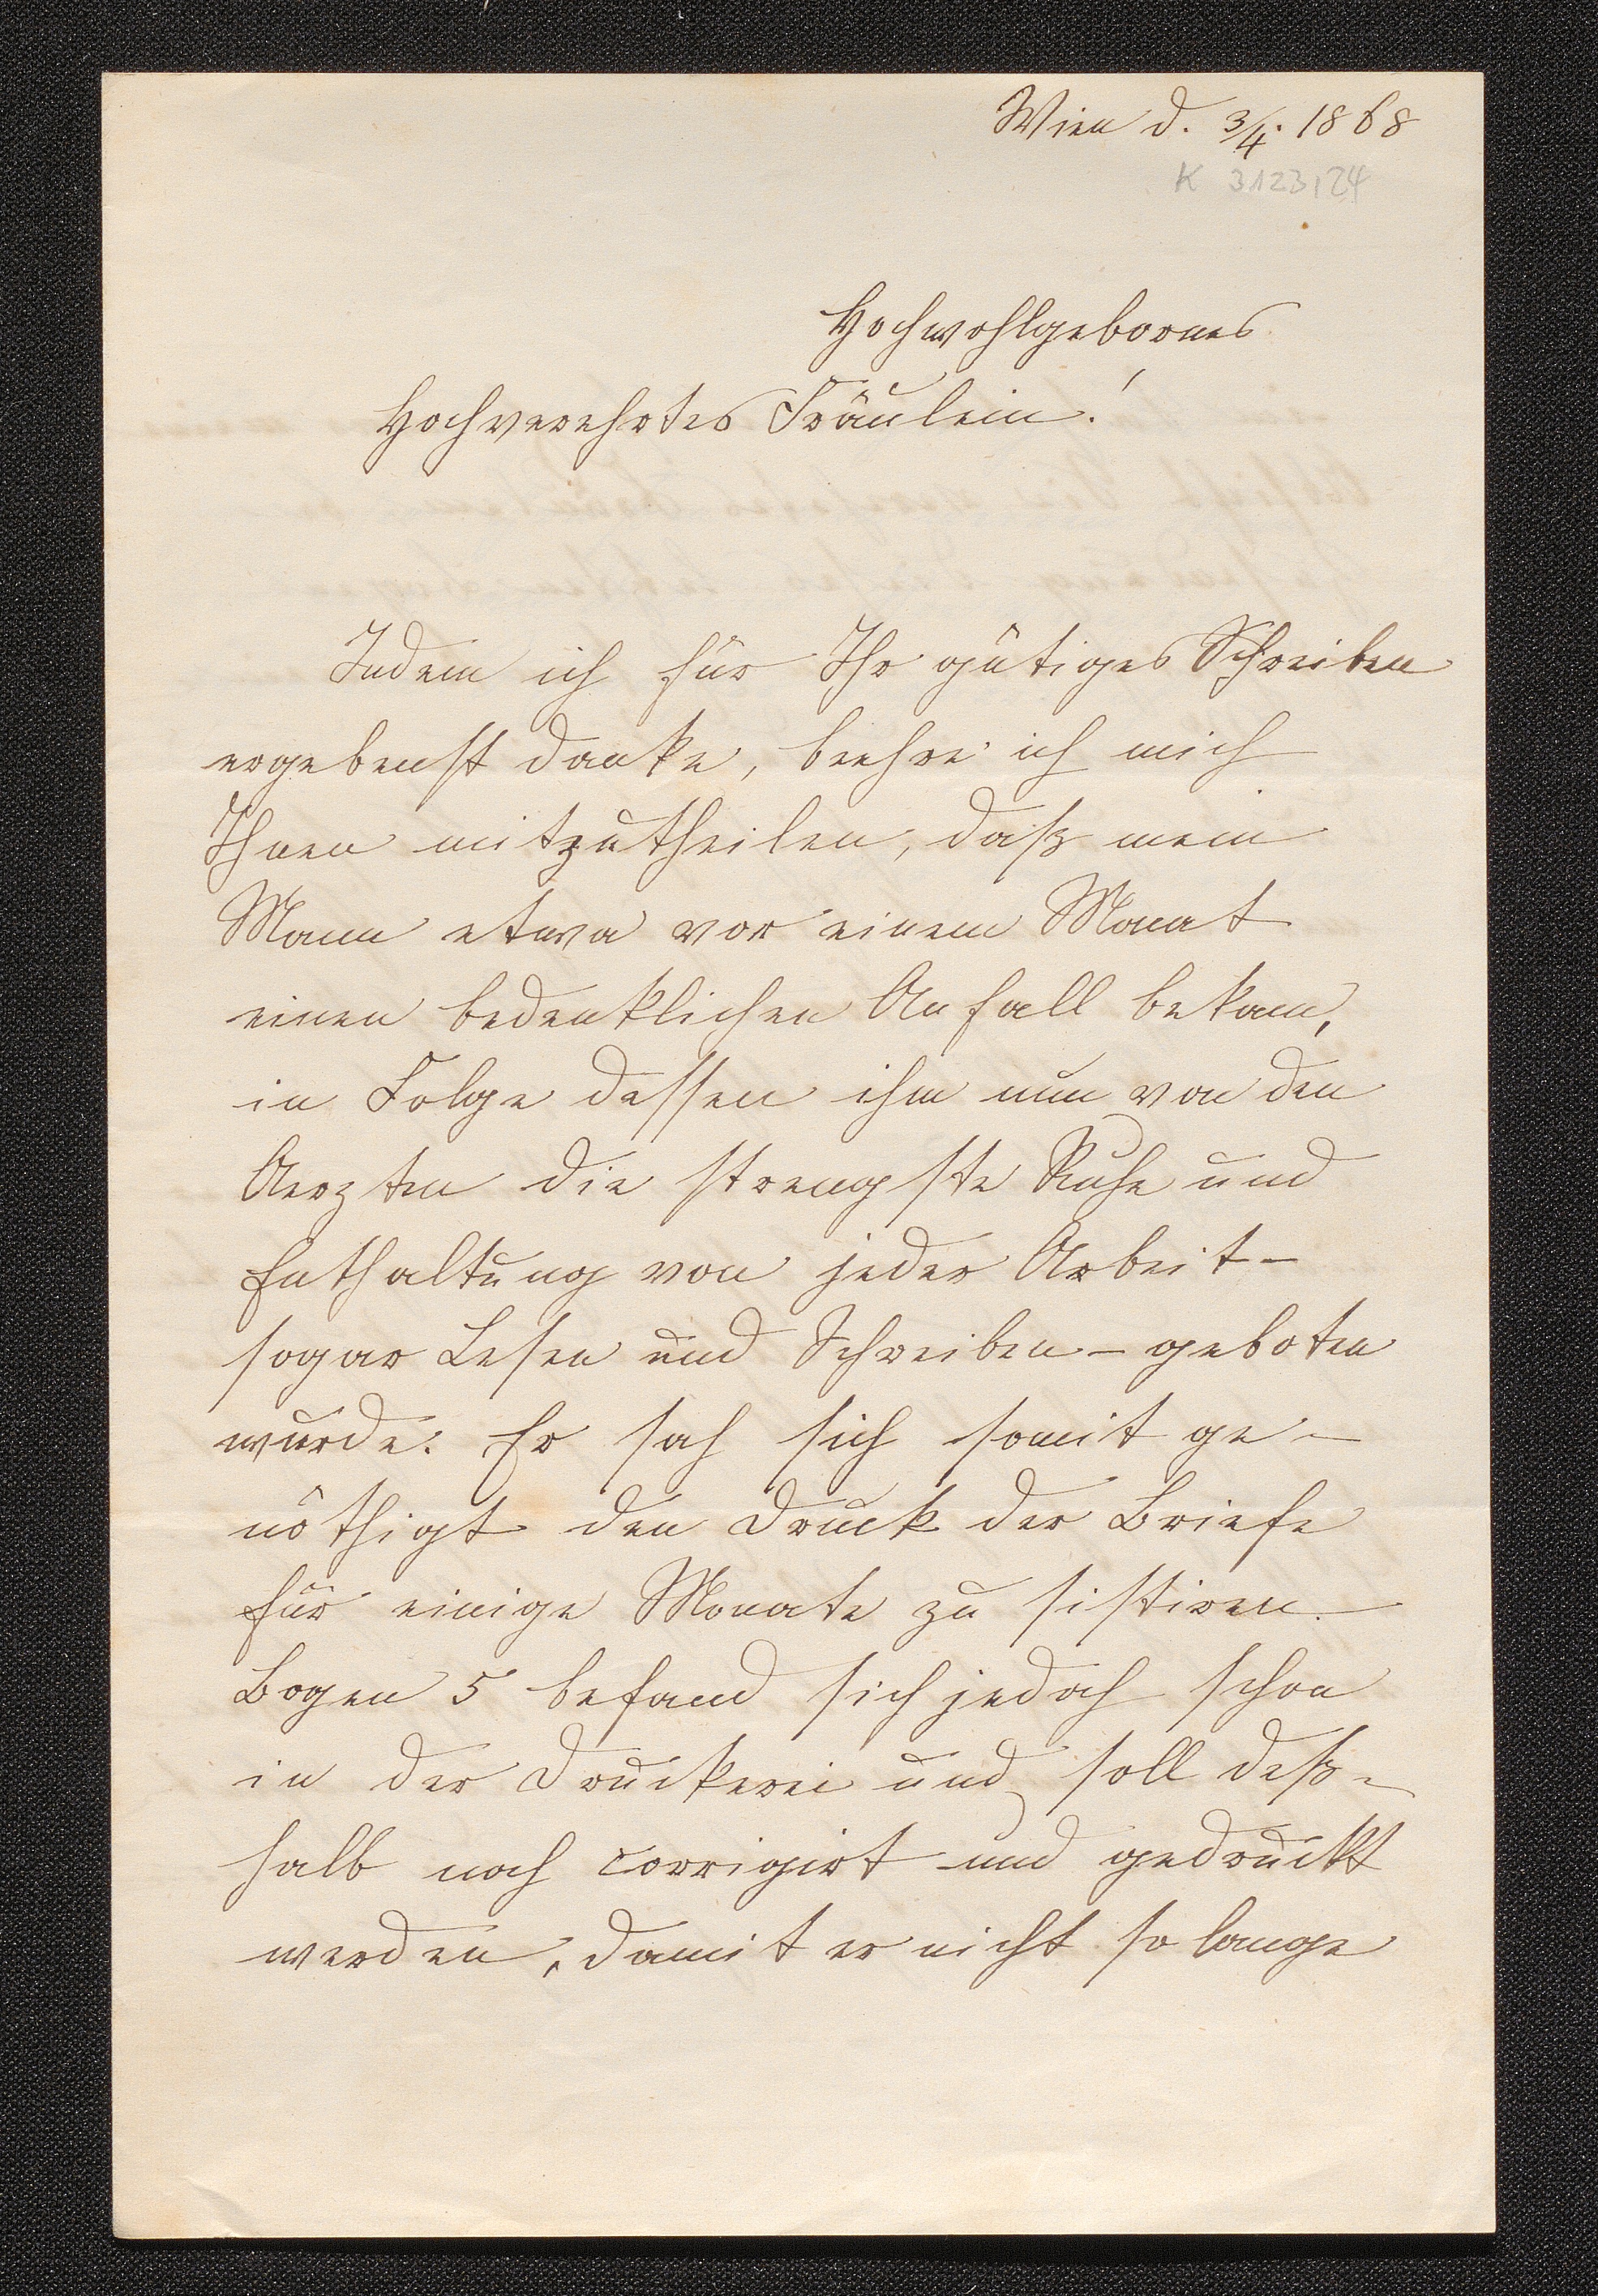 Wien d. 3/4. 1868
K 3123,24
Hochwohlgebornes
Hochverehrtes Fräulein!
Indem ich für Ihr gütiges Schreiben
ergebenst danke, beehre ich mich
Ihnen mitzutheilen, daß mein
Mann etwa vor einem Monat
einen bedenklichen Anfall bekam,
in Folge dessen ihm nun von den
Aerzten die strengste Ruhe und
Enthaltung von jeder Arbeit –
sogar Lesen und Schreiben – geboten
wurde. Er sah sich somit ge-
nöthigt den Druck der Briefe
für einige Monate zu sistiren.
Bogen 5 befand sich jedoch schon
in der Druckerei und soll deß-
halb noch corrigirt und gedruckt
werden, damit er nicht so lange